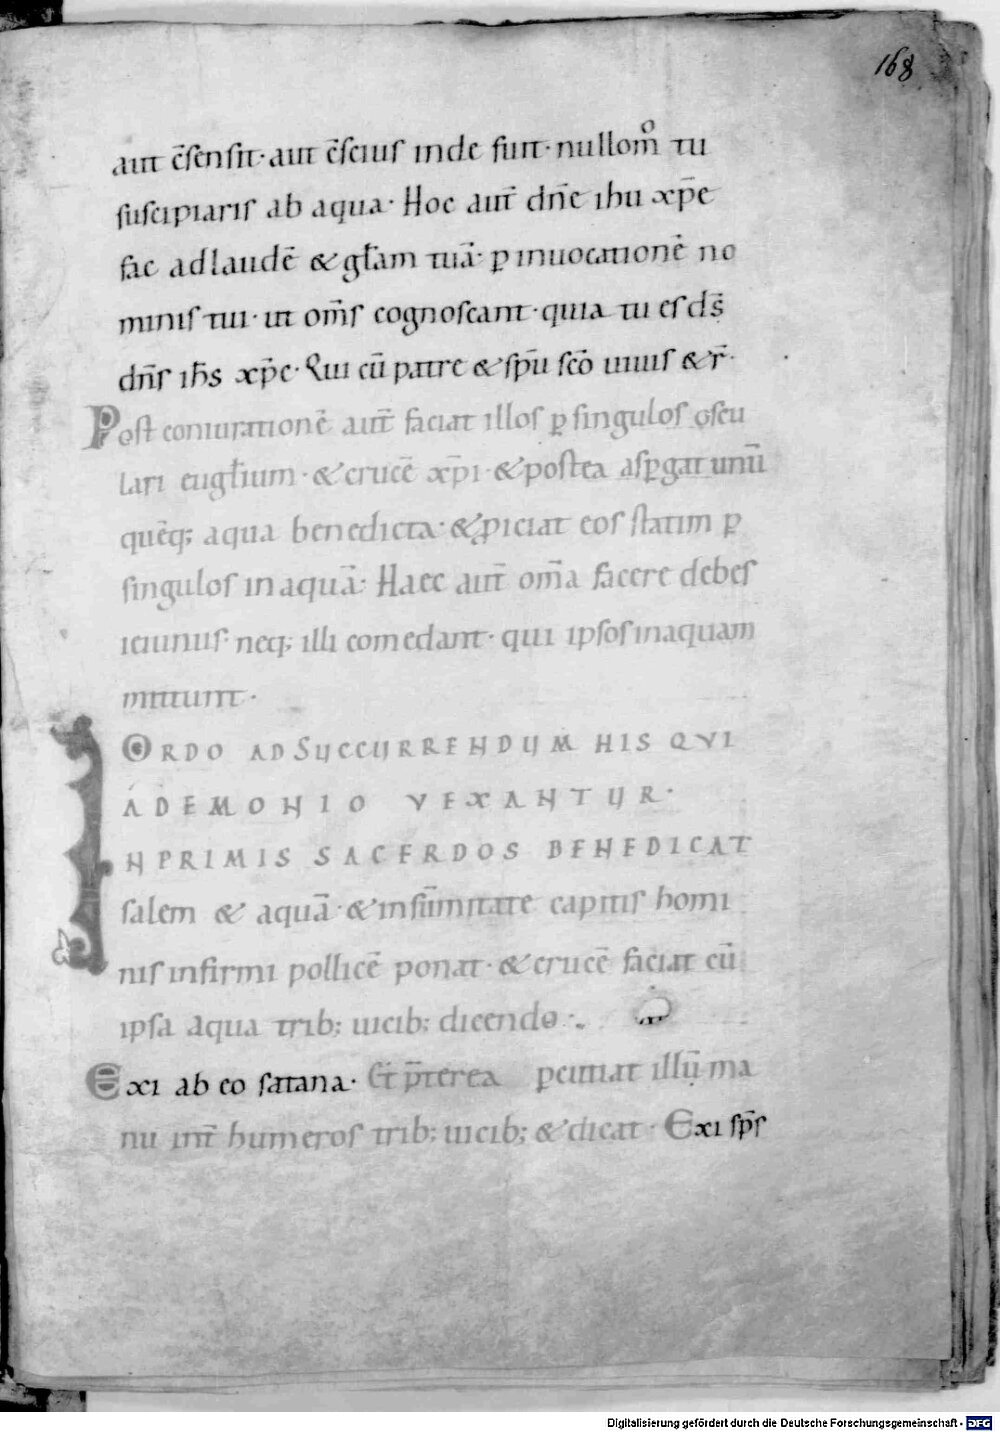 168
aut c̄sensit· aut c̄scius inde fuit· nullom̊ tu
suscipiaris ab aqua· Hoc aut̄ dn̄e ihu xp̄e
fac ad laudē & gl̄am tuā· ꝑ inuocationē no
minis tui· ut om̄s cognoscant· quia tu es ds̄
dn̄s ih̄s xp̄e· Qui cū patre & sp̄u sc̄o uiuis & r̄·
Post coniurationē aut̄ faciat illos ꝑ singulos oscu
lari eugl̄ium· & crucē xp̄i· & postea asꝑgat unū
quēq; aqua benedicta· & ꝓiciat eos statim ꝑ
singulos in aquā· Haec aut̄ om̄a facere debes
ieiunus· neq; illi comedant· qui ipsos inaquam
mittunt·
ORDO AD SUCCURRENDUM HIS QVI
A DEMONIO VEXANTUR·
INPRIMIS SACERDOS BENEDICAT
salem & aquā· & insūmitate capitis homi
nis infirmi pollicē ponat· & crucē faciat cū
ipsa aqua trib; uicib; dicendo·
Exi ab eo satana· Et p̄terea pcutiat illū ma
nu int̄ humeros trib; uicib; & dicat· Exi sp̄s
Digitalisierung gefördert durch die Deutsche Forschungsgemeinschaft - DFG